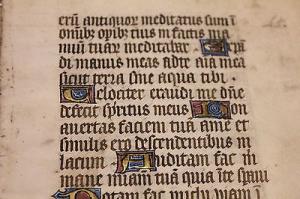 erū antiquor meditatus sum ī
omībȝ opibȝ tuis in factis ma
nuū tuar meditabar Expa
di manus meas ad te aīa mea
sicut terra sine aqua tibi
Velociter exaudi me dn̄e
defecit spiritus meus Non
avertas faciem tuā a me et
similis ero descendentibus in
lacum Auditam fac m̄
mane miam tuā quia ī te spaui
Notam fac michi viam ī